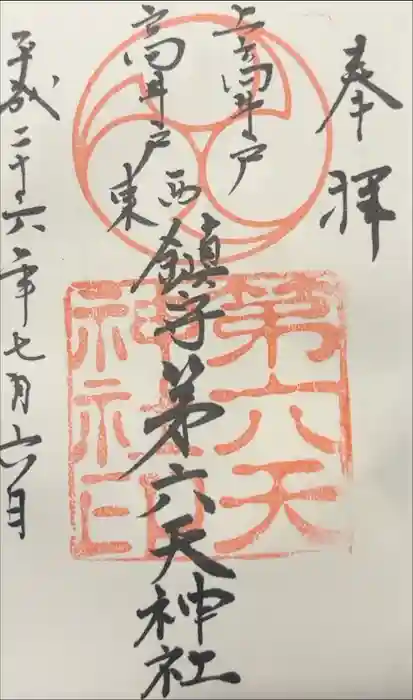 奉拝
上高井戸
高井戸
西
東
鎮守第六天神社
平成二十六年七月六日
第六天
神社印